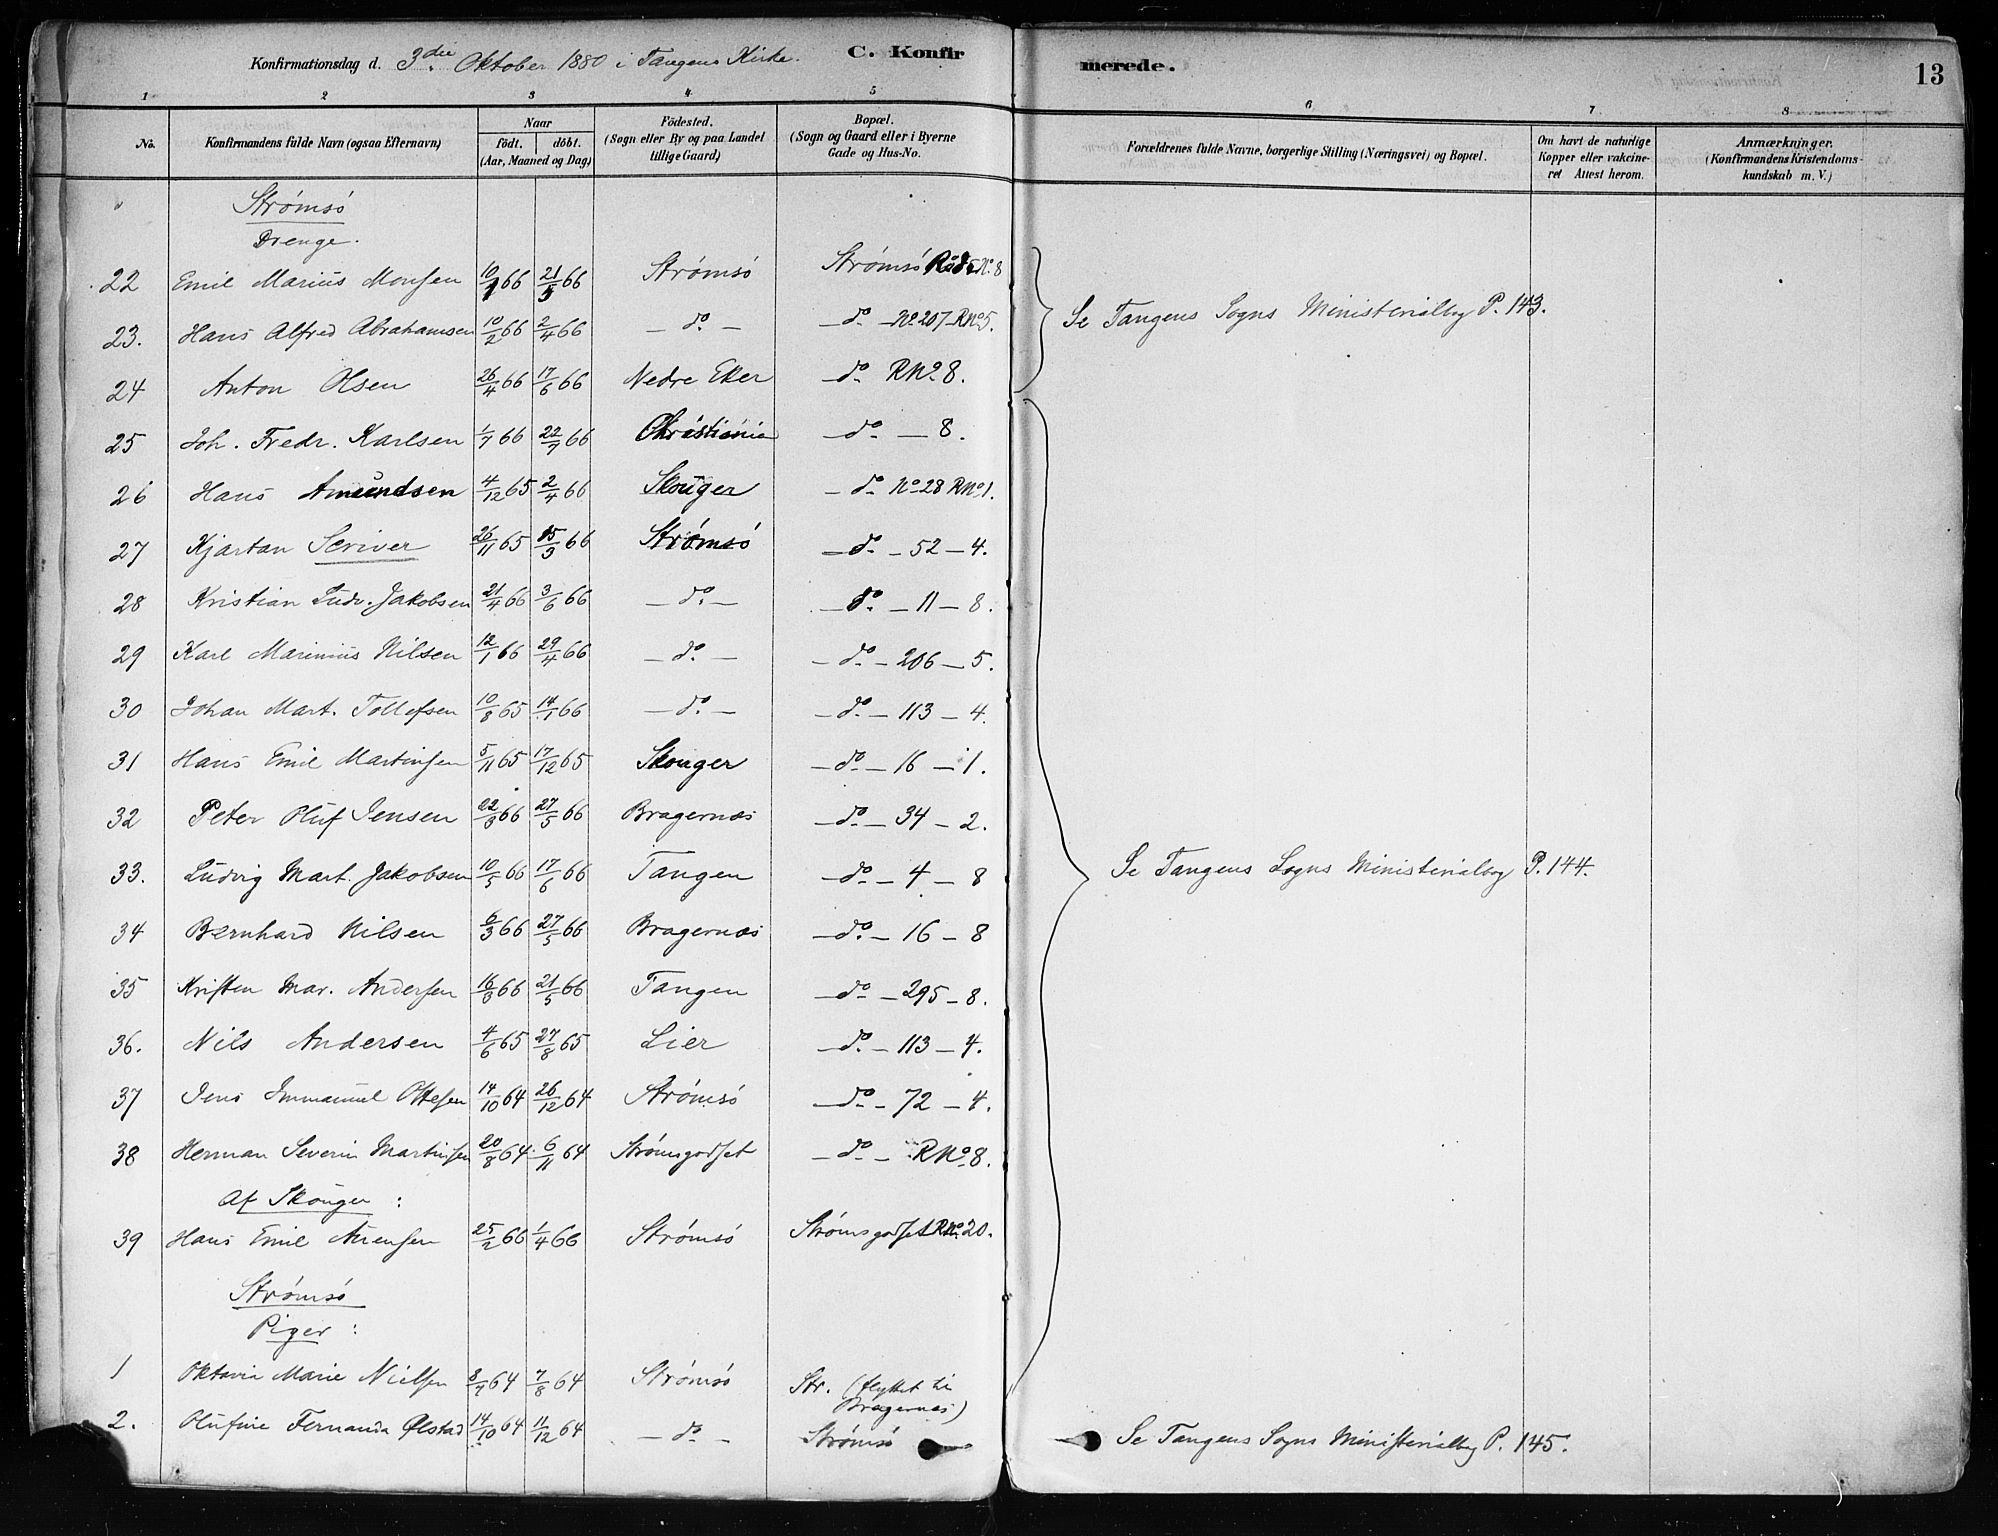 Konfirmationsdag d. 3die Oktober 1880 i Tangens Kirke. C. Konfirmerede. 13
1 2 3 4 5 6 7 8
No. Konfirmandens fulde Navn (ogsaa Efternavn) Naar födt. döbt. (Aar, Maaned og Dag) Födested. (Sogn eller By og paa Landet tillige Gaard) Bopæl. (Sogn og Gaard eller i Byerne Gade og Hus-No. Forældrenes fulde Navne, borgerlige Stilling (Næringsvei) og Bopæl. Om havt de naturlige Kopper eller vakcineret Attest herom. Anmærkninger. (Konfirmandens Kristendomskundskab m. V.)
Strømsö
Drenge.
22 Emil Marius Monsen 10/1 66 21/5 66 Strømsö Strømsö No. 8
23. Hans Alfred Abrahamsen 10/2 66 2/4 66 — do. — — do. — No. 207 — RNo. 5.
Se Tangens Sogns Ministerialbog P. 143.
24 Anton Olsen 26/4 66 17/6 66 Nedre Eker — do. RNo. 8.
25 Joh. Fredr. Karlsen 1/7 66 22/7 66 Christiania — do. — 8.
26 Hans Amundsen 4/12 65 2/4 66 Skouger — do. No. 28 RNo. 1.
27 Kjartan Scriver 26/11 65 15/3 66 Strømsö — do. — 52 — 4.
28 Kristian Ludv. Jakobsen 21/4 66 3/6 66 — do. — — do. — 11 — 8.
29 Karl Marinius Nilsen 12/1 66 29/4 66 — do. — — do. — 206 — 5.
30 Johan Mart. Tollefsen 10/8 65 14/1 66 — do. — — do. — 113 — 4.
31 Hans Emil Martinsen 5/11 65 17/12 65 Skouger — do. — 16 — 1.
32 Peter Oluf Jensen 22/3 66 27/5 66 Bragernæs — do. — 34 — 2.
33. Ludvig Mart. Jakobsen 10/5 66 17/6 66 Tangen — do. — 4 — 8
Se Tangens Sogns Ministerialbog P. 144.
34 Bernhard Nilsen 6/3 66 27/5 66 Bragernæs — do. — 16 — 8
35 Kristen Mar. Andersen 16/3 66 21/5 66 Tangen — do. — 295 — 8.
36. Nils Andersen 4/6 65 27/8 65 Lier — do. — 113 — 4.
37 Jens Immanuel Ottesen 14/10 64 26/12 64 Strømsö — do. — 72 — 4.
38 Herman Severin Martinsen 20/8 64 6/11 64 Strømsgodset — do. — RNo. 8.
Af Skouger :
39 Hans Emil 25/2 66 1/4 66 Strømsö Strømsgodset RNo. 20.
Strømsö
Piger :
1 Oktavia Marie Nielsen 3/7 64 7/8 64 Strømsö Str. (flyttet til Bragernæs)
2. Olufine Fernanda Ølstad 14/10 64 11/12 64 — do. — Strømsö
Se Tangens Sogns Ministerialbog P. 145.